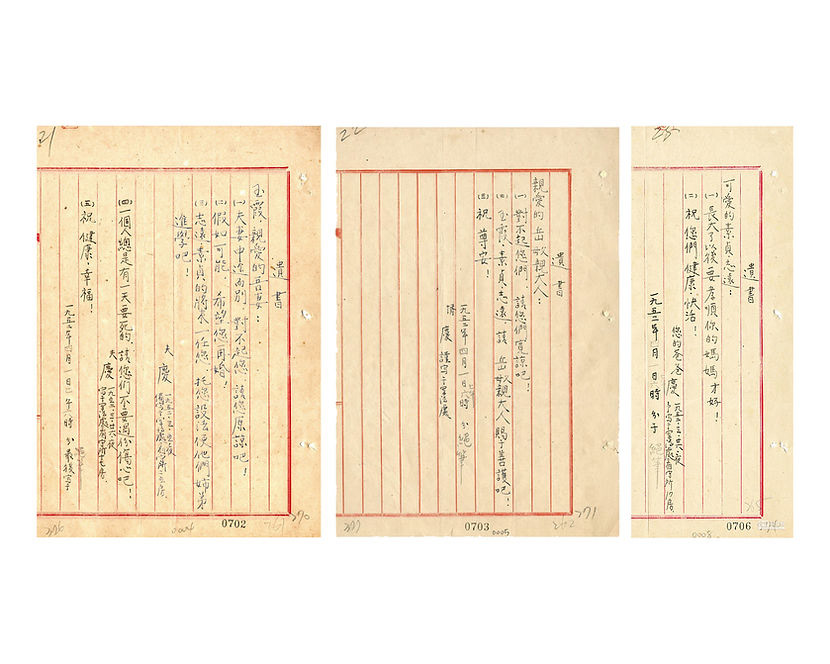 21
遺書
玉霞、親愛的吾妻：
(一)夫妻中途而別，對不起您，請您原諒吧！
(二)假如可能，希望您再婚！
(三)志遠素貞的將來一任您，托您設法使他們姊弟
進學吧！
夫 慶
(四)一個人總是有一天要死的，請您們不要過份傷心吧！
夫 慶
(五)祝健康，幸福！
一九五二年四月一日 午六時 分 最後寫
0702
370
22
遺書
親愛的岳叔親大人：
(一)對不起您們，請您們寬諒吧！
玉霞、素貞志遠、請岳叔親大人賜予善護吧！
祝尊安！
一九五二年四月一日 六時 分 絕筆
慶 謹寫于軍法處
0703
0005
371
遺書
可愛的素貞志遠：
(一)長大了以後要孝順你的媽媽才好！
(二)祝您們健康，快活！
您的爸爸 慶
一九五二年 月 日 時 分于 絕筆
0706
0008